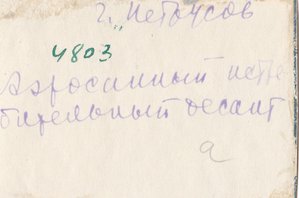 г. „Нетоусов
4803
Аэросанный истре
бительный десант
а